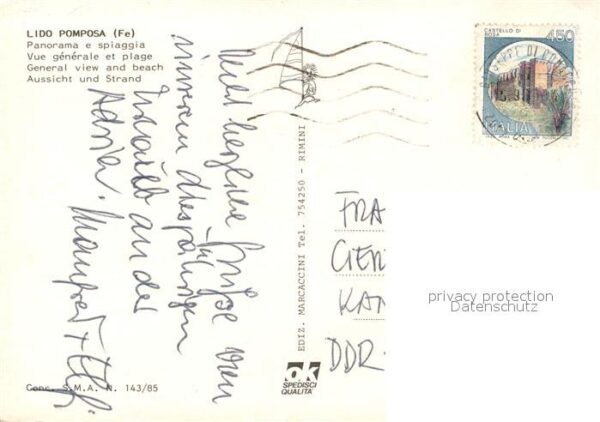 LIDO POMPOSA (Fe)
Panorama e spiaggia
Vue générale et plage
General view and beach
Aussicht und Strand
450
CASTELLO DI
ROSA
ITALIA
Viele herzliche Grüße von
unserem diesjährigen
Urlaub an der
Adria.
Manfred +
EDIZ. MARCACCINI Tel. 754250 - RIMINI
FRA
GER
KAN
DDR-
privacy protection
Datenschutz
ok
SPEDISCI
QUALITA'
Conc. S.M.A. N. 143/85